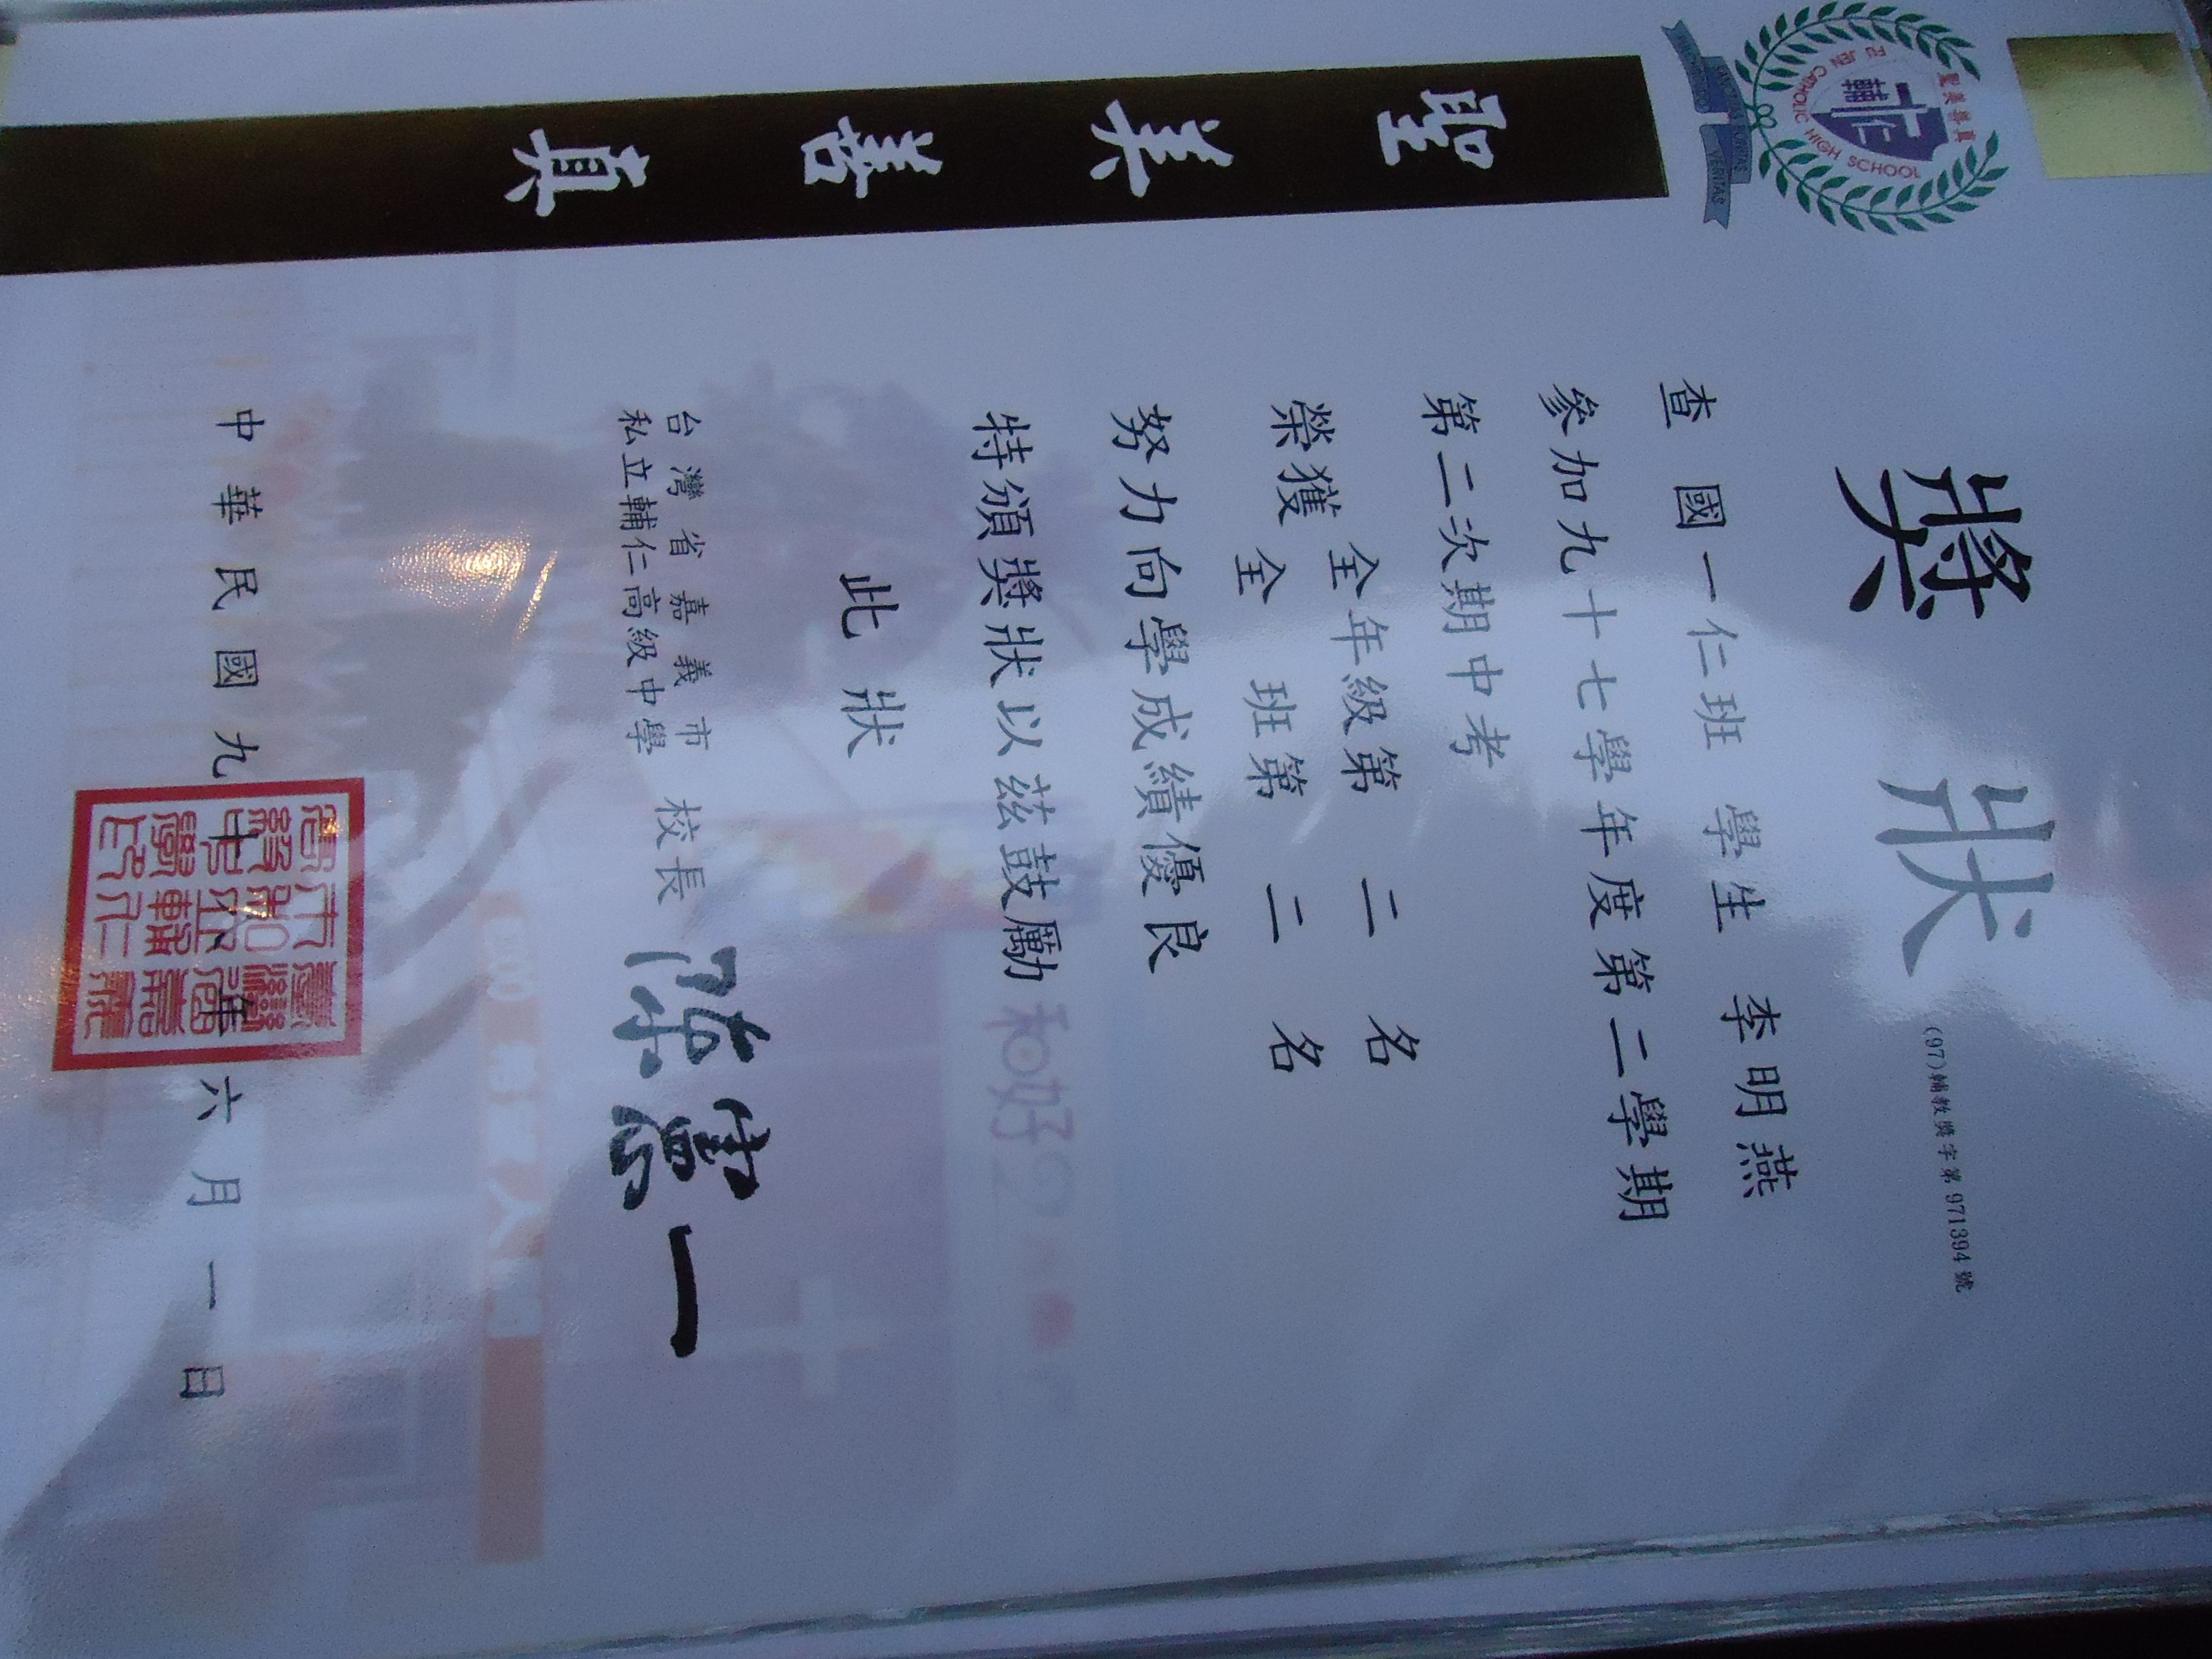 聖美善真
輔仁
FU JEN CATHOLIC HIGH SCHOOL
VERITAS
聖
美
善
真
獎狀
(97)輔教獎字第971394號
查國一仁班 學生 李明燕
參加九十七學年度第二學期
第二次期中考
榮獲 全年級第 二 名
全 班第 二 名
努力向學成績優良
特頒獎狀以茲鼓勵
此 狀
台灣省嘉義市
私立輔仁高級中學 校長
中華民國九十八年六月一日
和好